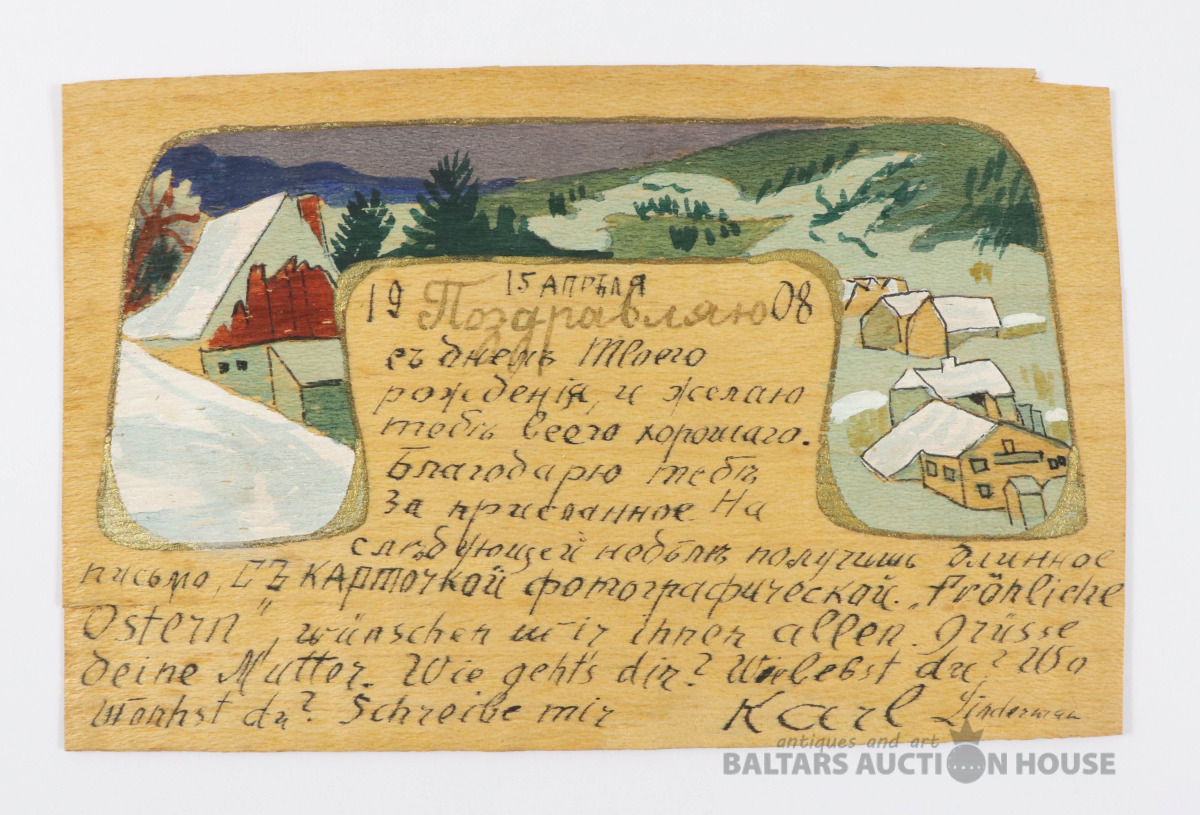 19 15 АПРѢЛЯ 08
Поздравляю
съ днемъ Твоего
рожденія, и желаю
тебѣ всего хорошаго.
Благодарю тебѣ
за присланное. На
слѣдующей недѣлѣ получишь длинное
письмо, СЪ КАРТОЧКОЙ фотографической. „Fröhliche
Ostern“, wünschen wir ihnen allen. Grüsse
deine Mutter. Wie gehts dir? Wie lebst du? Wo
wonhst du? Schreibe mir Karl Linderman
antiques and art
BALTARS AUCTION HOUSE